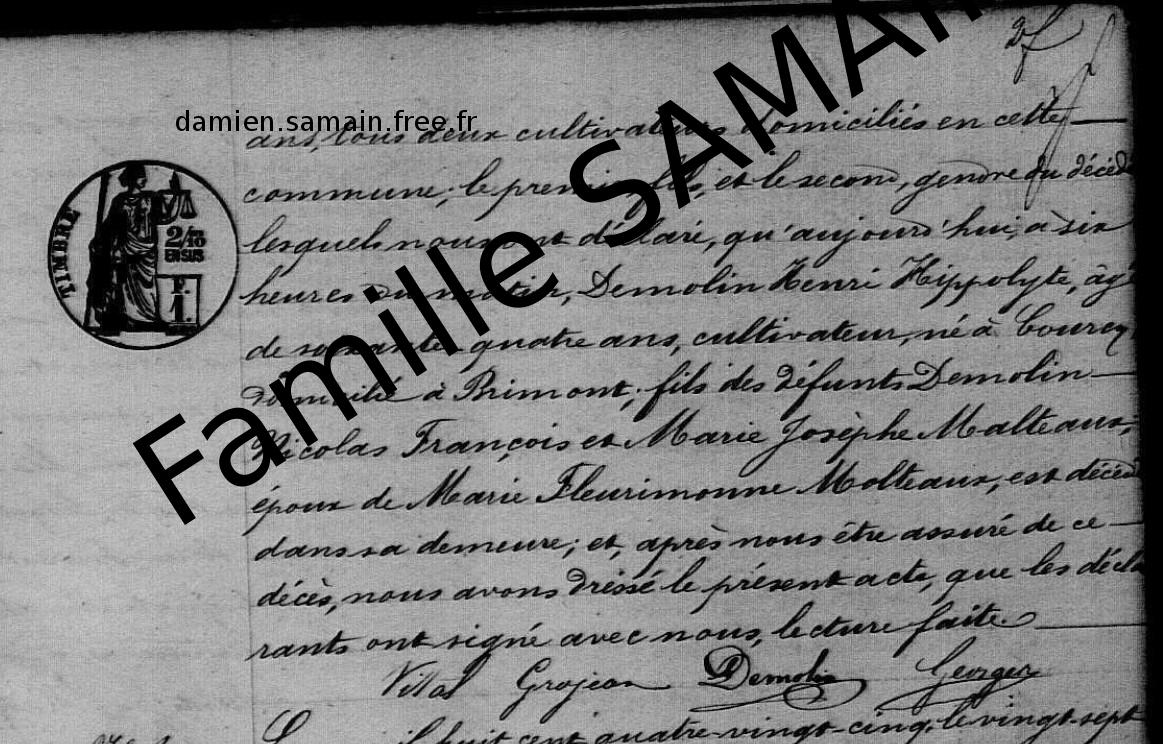 damien.samain.free.fr
Famille SAMAIN
TIMBRE
2/10
EN SUS
F.
1.
ans, tous deux cultivateurs domiciliés en cette
commune; le premier fils, et le second, gendre du décédé
lesquels nous ont déclaré, qu'aujourd'hui, à six
heures du matin, Demolin Henri Hippolyte, âgé
de soixante quatre ans, cultivateur, né à Courcy
domicilié à Brimont; fils des défunts Demolin
Nicolas François et Marie Josèphe Malteaux;
époux de Marie Fleurimonne Molteaux, est décédé
dans sa demeure; et, après nous être assuré de ce
décès, nous avons dressé le présent acte, que les décla
rants ont signé avec nous, lecture faite.
Vital Grojean Demolin Georger
il huit cent quatre-vingt-cinq, le vingt-sept